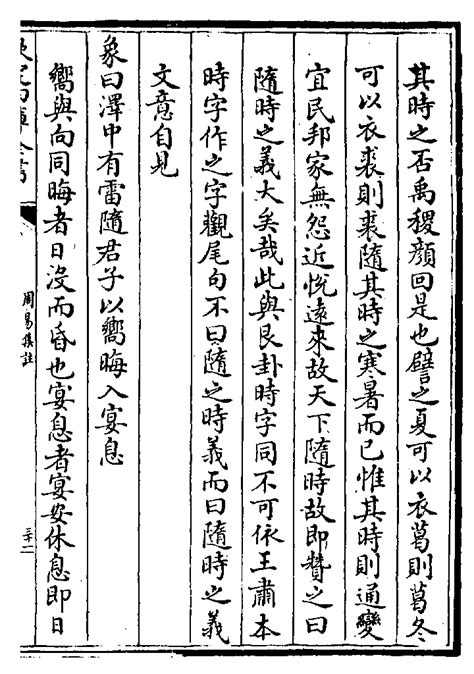 其時之否禹稷顔回是也譬之夏可以衣葛則葛冬
可以衣裘則裘隨其時之寒暑而已惟其時則通變
宜民邦家無怨近悅遠來故天下隨時故即贊之曰
隨時之義大矣哉此與艮卦時字同不可依王肅本
時字作之字觀尾句不曰隨之時義而曰隨時之義
文意自見
象曰澤中有雷隨君子以嚮晦入宴息
嚮與向同晦者日沒而昏也宴息者宴安休息即日
欽定四庫全書
周易集註
三十二